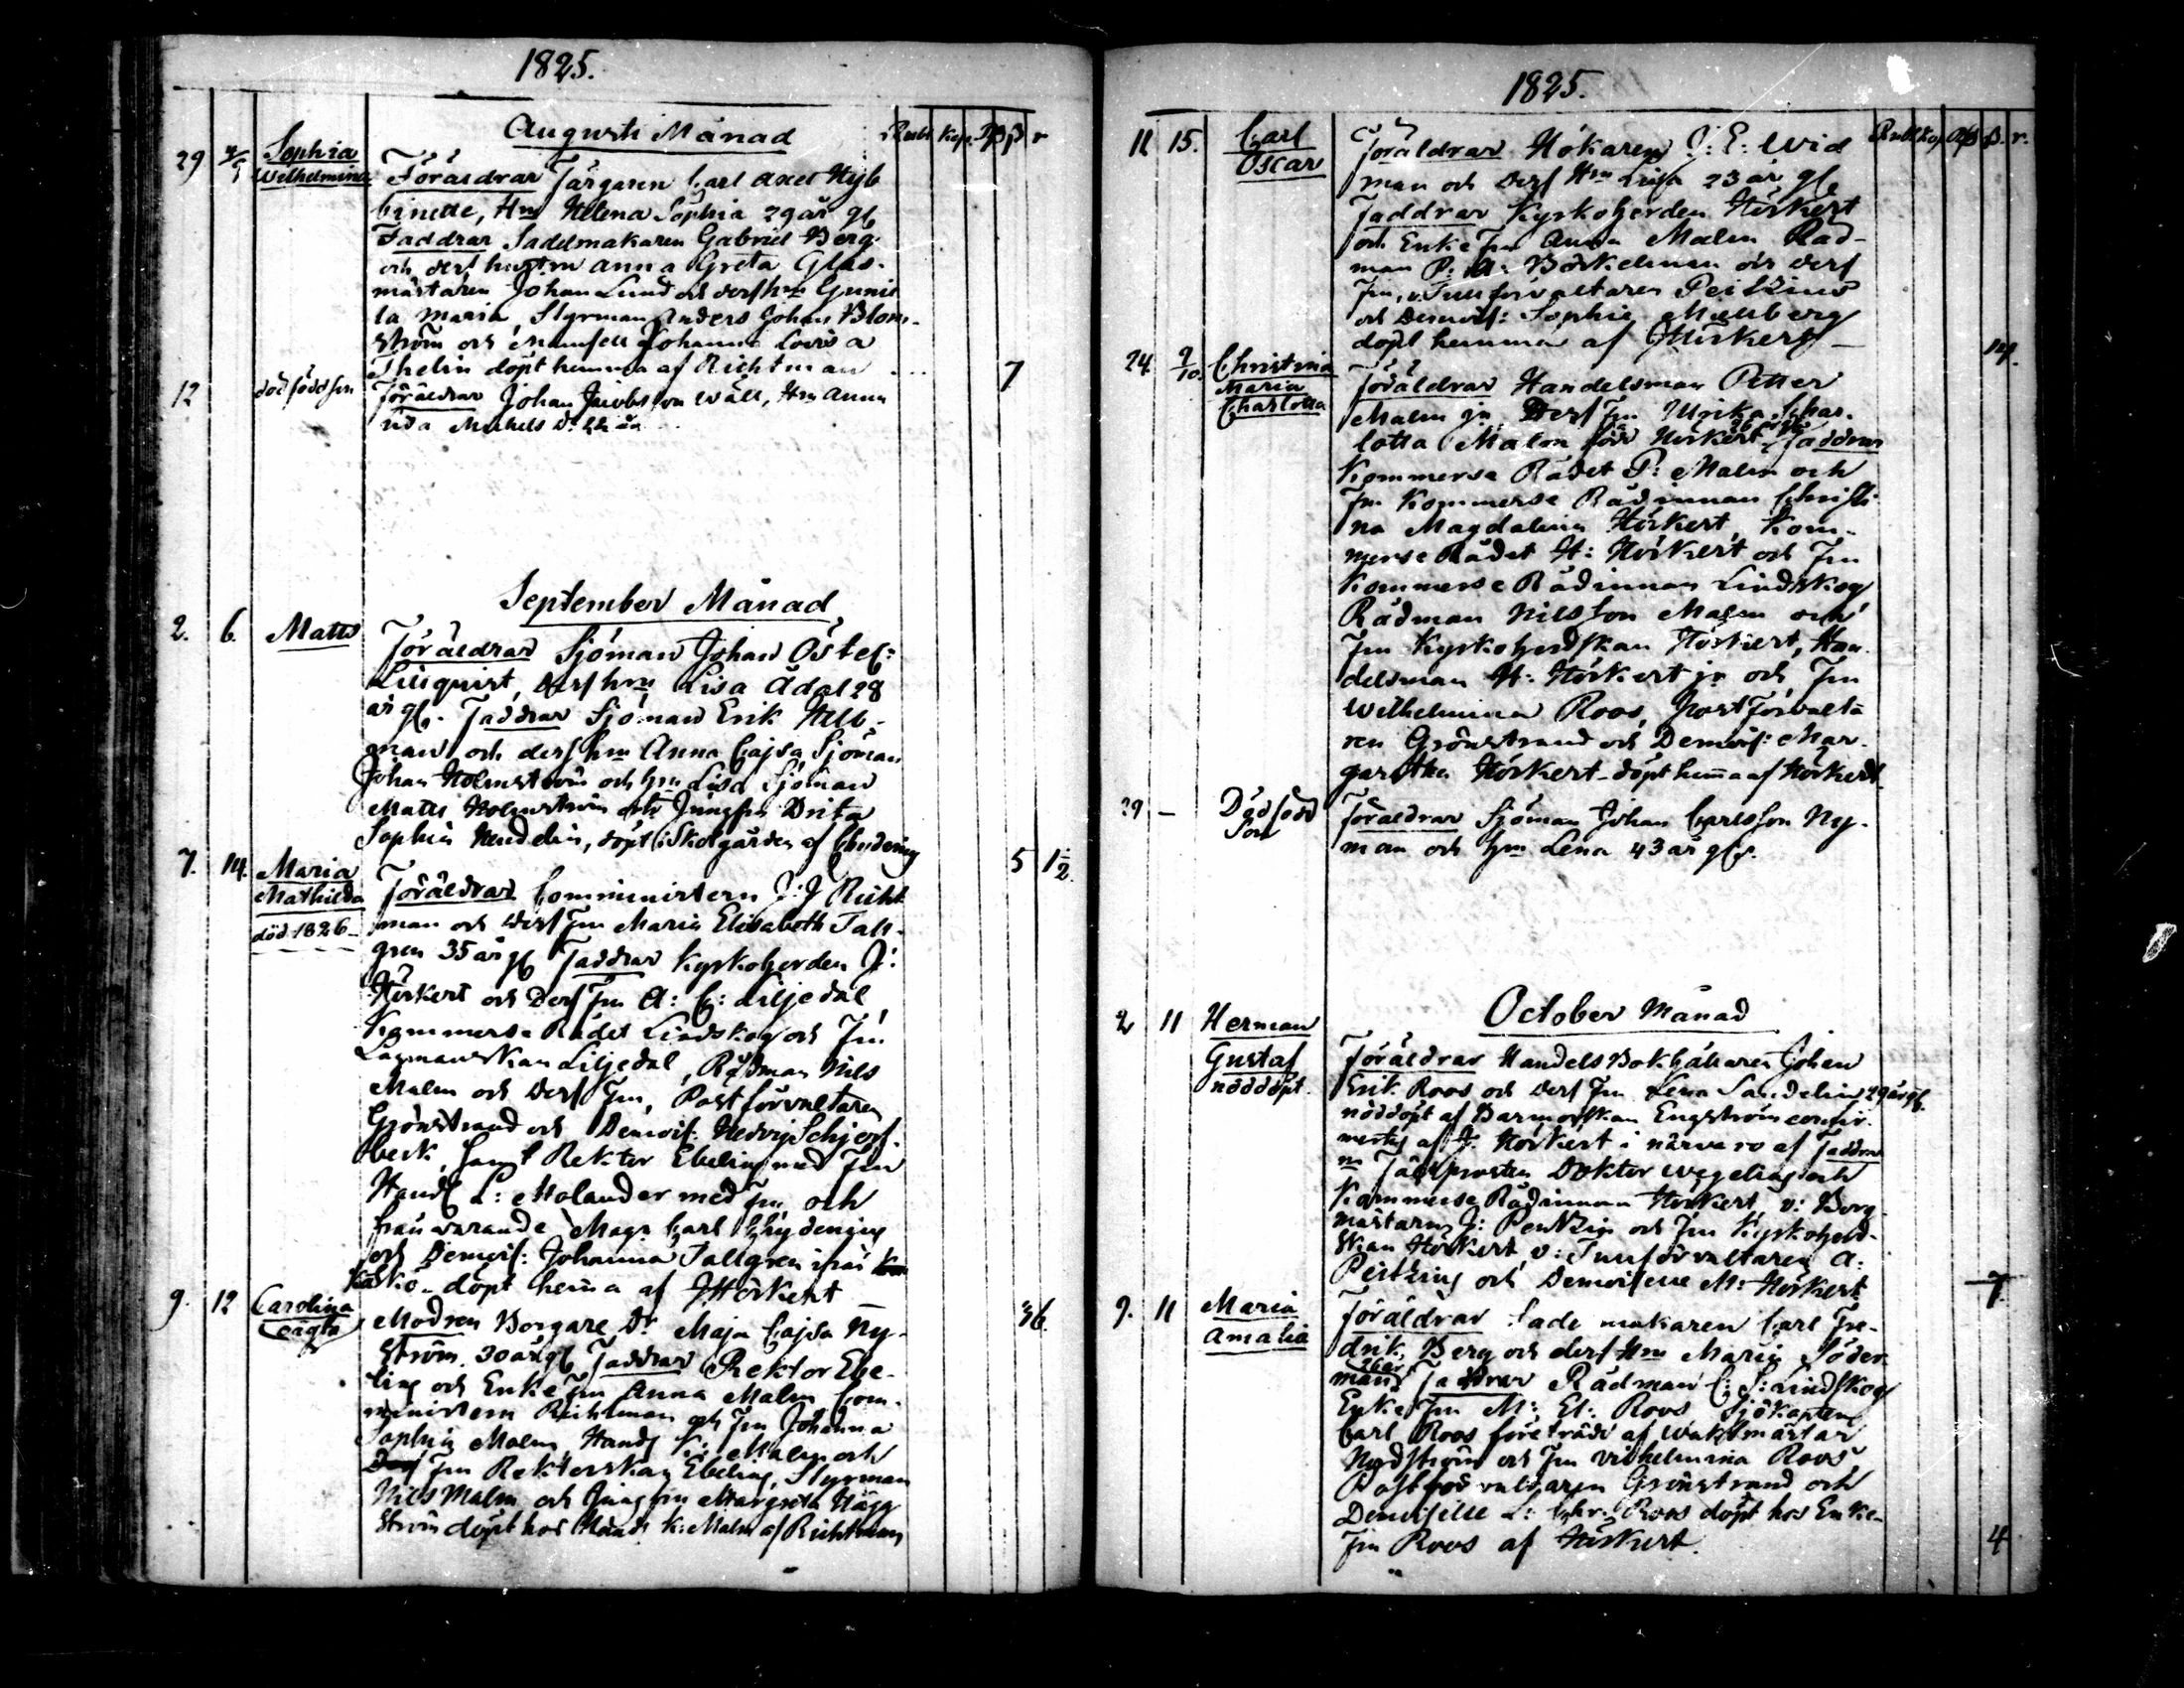 1825.
Augusti Månad
Rubl. Kop. Rß ß r
29 4/9 Sophia Wilhelmina
Föräldrar Färgaren Carl Axel Hyb
binette, Hru Helena Sophia 29 år gl
Faddrar Sadelmakaren Gabriel Berg
och ders hustru Anna Greta Glas-
mästaren Johan Lund och ders hru Gunil
la Maria, Styrman Anders Johan Blom-
ström och Mamsell Johanna Lovisa
Thelin döpt hemma af Richtman ... 7
12 död född son
Föräldrar Johan Jacobsson Wäll, Hru Anna
Michels Dr
September Månad
2. 6. Matts
Föräldrar Sjöman Johan
Liliquist, ders hru Lisa Ådal 28
år gl. Faddrar Sjöman Erik Hell-
man och ders hru Anna Cajsa, Sjöman
Johan Holmström och hru Lisa Sjöman
Matts Holmström och Jungfru Brita
Sophia Wendelin, döpt i Skolgården af Chydenius
5 1 1/2.
7. 14. Maria Mathilda
död 1826
Föräldrar Comministern J: J Richt
man och ders Fru Maria Elisabeth Tall-
gren 35 år gl Faddrar Kyrkoherden J:
Hörkert och Ders Fru A: C: Liljedal
Kommerse Rådet Lindskog och Fru
Lagmanskan Liljedal, Rådman Nils
Malm och Ders Fru, Postförvaltaren
Grönstrand och Demois: Hedvig Schjerf-
beck, samt Rektor Ebeling med Fru
Handl L: Molander med Fru och
från varande Mag: Carl Chydenius
och Demois: Johanna Tallgren ifrån
Kaskö - döpt hema af JHörkert
9. 12 Carolina
oägta
Modren Borgare Dr Maja Cajsa Ny-
ström 30 år gl Faddrar Rektor Ebe-
ling och Enke Fru Anna Malm Com-
ministern Richtman och Fru Johanna
Sophia Malm, Handl K: Malm och
Fru Rektorskan Ebeling, Styrman
Nils Malm och Jungfru Margreta Hägg
ström döpt hos Handl K: Malm af Richtman
36.
1825.
Rubl Kop Rß ß. r.
11 15. Carl Oscar
Föräldrar Hökaren J: E: Wid
man och Ders Hru Lisa 23 år gl
Faddrar Kyrkoherden Hörkert
och Enke Fru Anna Malm Råd-
man P: A: Björkelman och ders
Fru, v. Tullförvaltaren Peitzius
och Demois: Sophie Mellberg
döpt hemma af JHörkert — 14.
24. 9/10. Christina Maria Charlotta
Föräldrar Handelsman Petter
Malm jr Ders Fru Ulrika Char-
lotta Malm född Hörkert 26 år gl Faddrar
Kommerse Rådet P: Malm och
Fru Kommerse Rådinnan Christi-
na Magdalena Hörkert, Kom-
merse Rådet H: Hörkert och Fru
Kommerse Rådinnan Lindskog
Rådman Nilsson Malm och
Fru Kyrkoherdskan Hörkert, Han-
delsman H: Hörkert jr och Fru
Wilhelmina Roos, Postförvalta
ren Grönstrand och Demois: Mar-
garetha Hörkert - döpt hema af Hörkert
29 — Dödfödd Son
Föräldrar Sjöman Johan Carlsson Ny-
man och hru Lena 43 år gl.
October Månad
2 11 Herman Gustaf
nöddöpt.
Föräldrar Handels Bokhållaren Johan
Erik Roos och Ders Fru Lena Sandelin 29 år gl.
nöddöpt af Barmorskan Engström confir-
merty af J. Hörkert i närvaro af Faddrar
ne Fältprosten Doktor Wegelius och
Kommerse Rådinnan Hörkert, v: Borg-
mästaren J: Peitzius och Fru Kyrkoherd-
skan Hörkert v: Tullförvaltaren A:
Peitzius och Demoiselle M: Hörkert
7.
9. 11 Maria Amalia
Föräldrar Sadelmakaren Carl Fre-
drik Berg och ders Hru Maria Söder-
man 26 år Faddrar Rådman C: J: Lindskog
Enke Fru M: El: Roos Sjökapten
Carl Roos företrädd af Waktmästar
Nordström och Fru Vilhelmina Roos,
Postförvaltaren Grönstrand och
Demoiselle L: Chr: Roos döpt hos Enke-
Fru Roos af Hörkert.
4